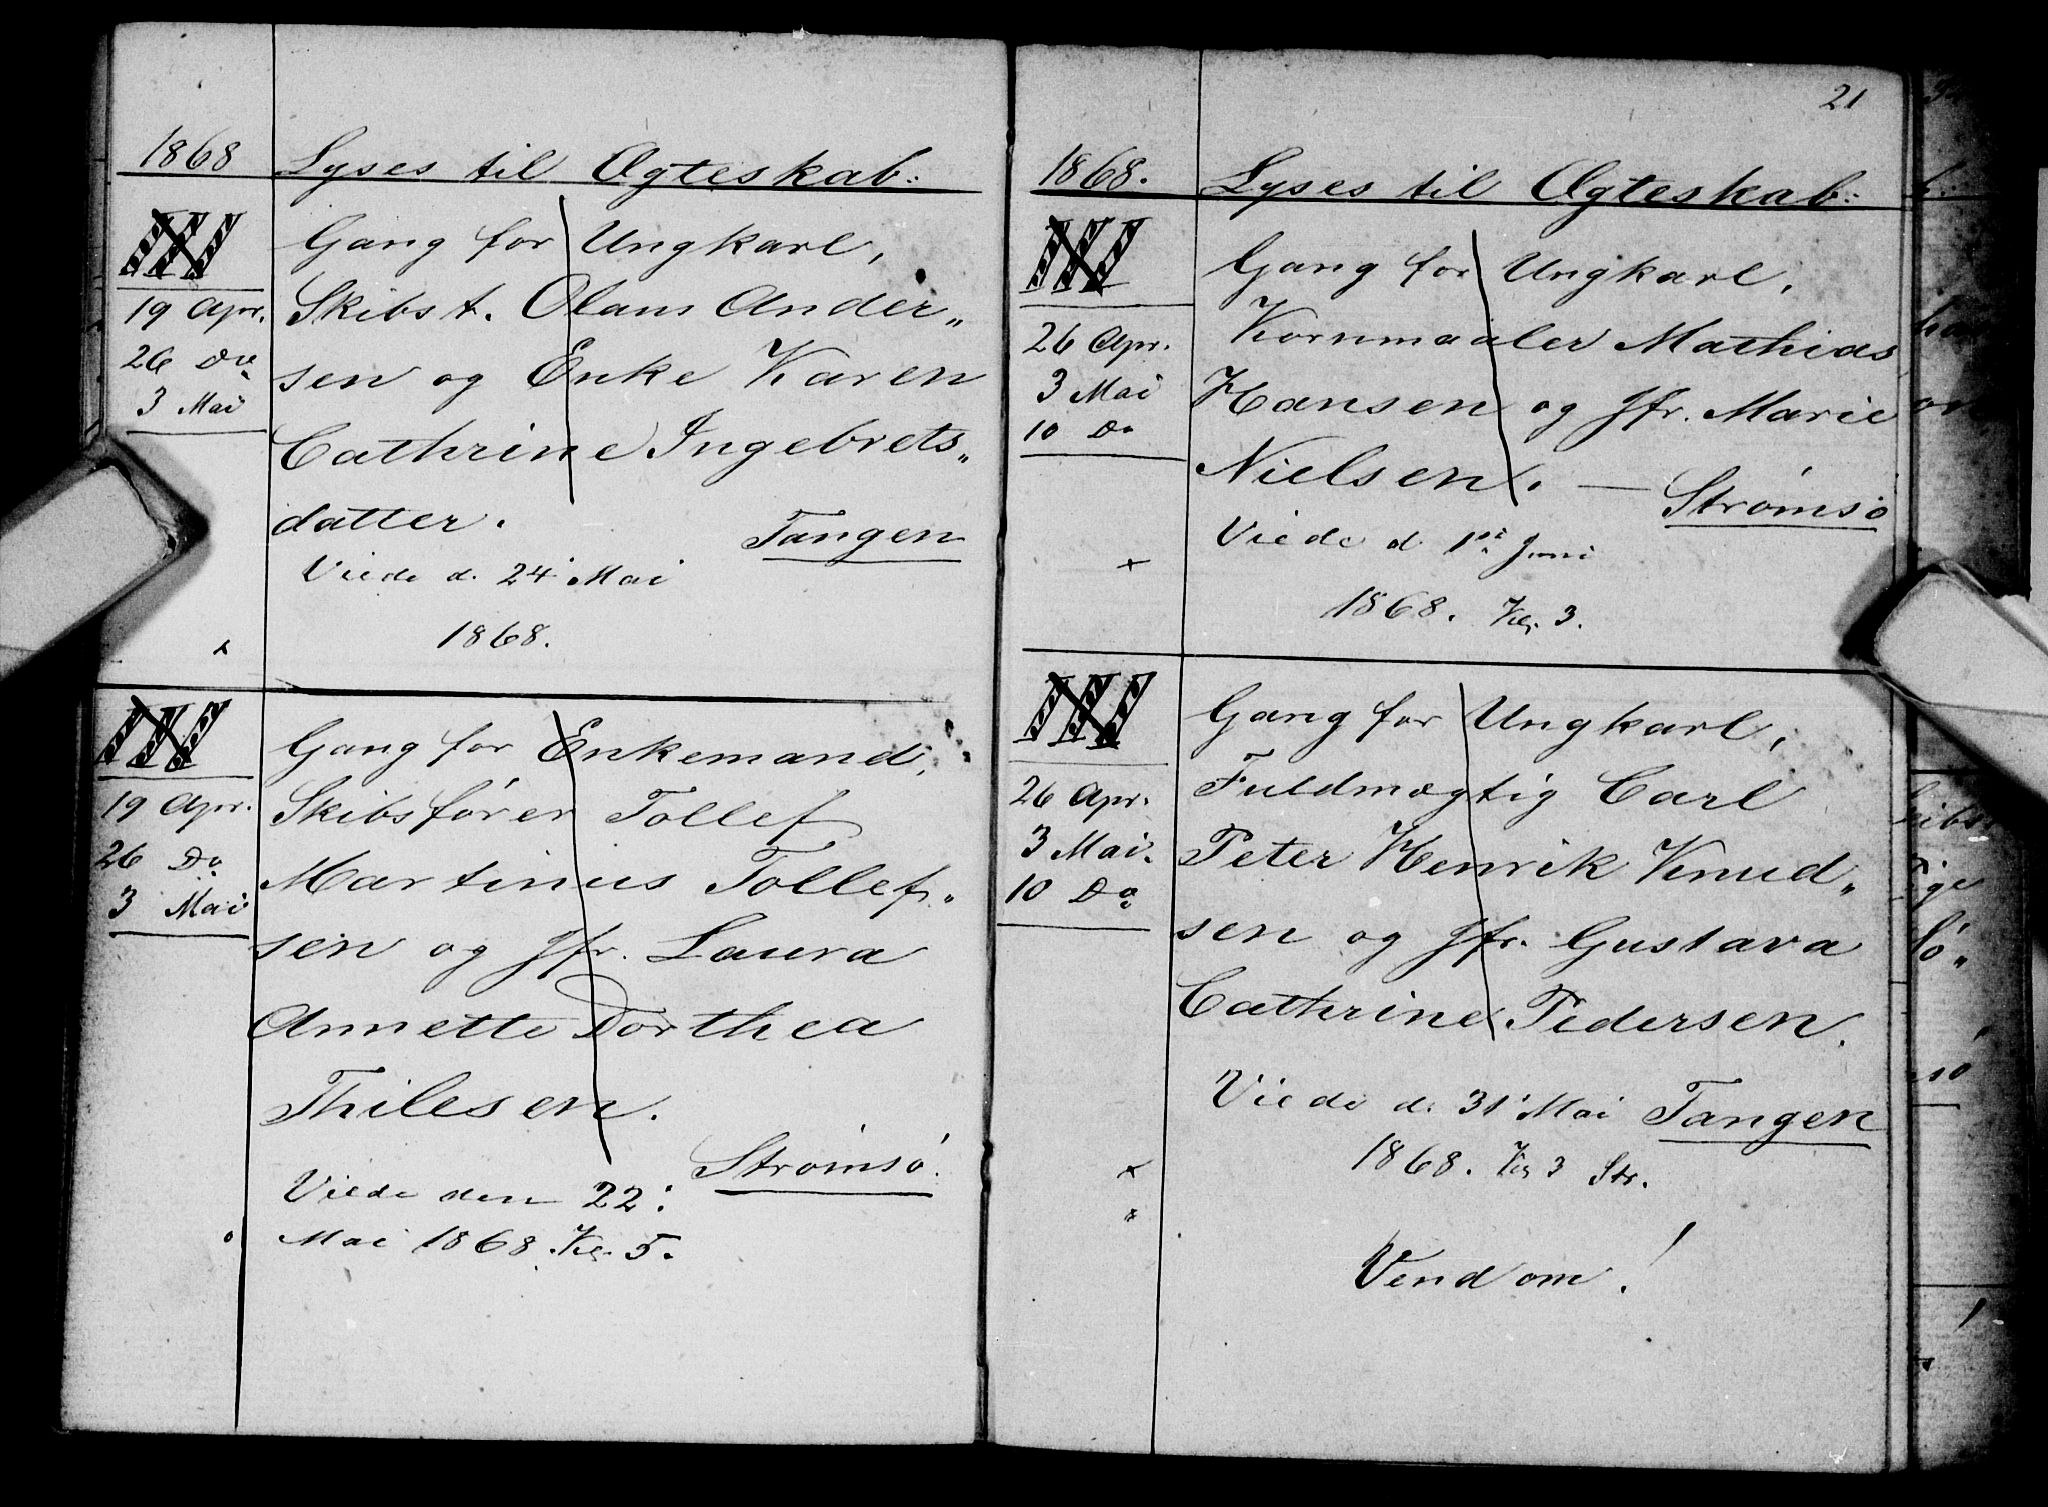 1868 Lyses til Ægteskab:
III Gang for Ungkarl,
19 Apr. Skibst. Olaus Ander„
26 Do sen og Enke Karen
3 Mai Cathrine Ingebrets„
datter. Tangen
Viede d. 24 Mai
1868.
x
III Gang for Enkemand,
Skibsfører Tollef
19 Apr. Martinus Tollef„
26 Do sen og Jfr. Laura
3 Mai Annette Dorthea
Thilesen.
Strømsø.
Viede den 22:
Mai 1868. Kl. 5.
21
1868. Lyses til Ægteskab:
III Gang for Ungkarl,
26 Apr. Kornmaaler Mathias
3 Mai Hansen og Jfr. Marie
10 Do Nielsen. — Strømsø
Viede d. 1ste Juni
x
1868. Kl. 3.
III Gang for Ungkarl,
26 Apr. Fuldmægtig Carl
3 Mai. Peter Henrik Knud„
10 Do sen og Jfr. Gustava
Cathrine Pedersen.
Viede d. 31 Mai Tangen
x 1868. Kl 3 Str.
Vend om!